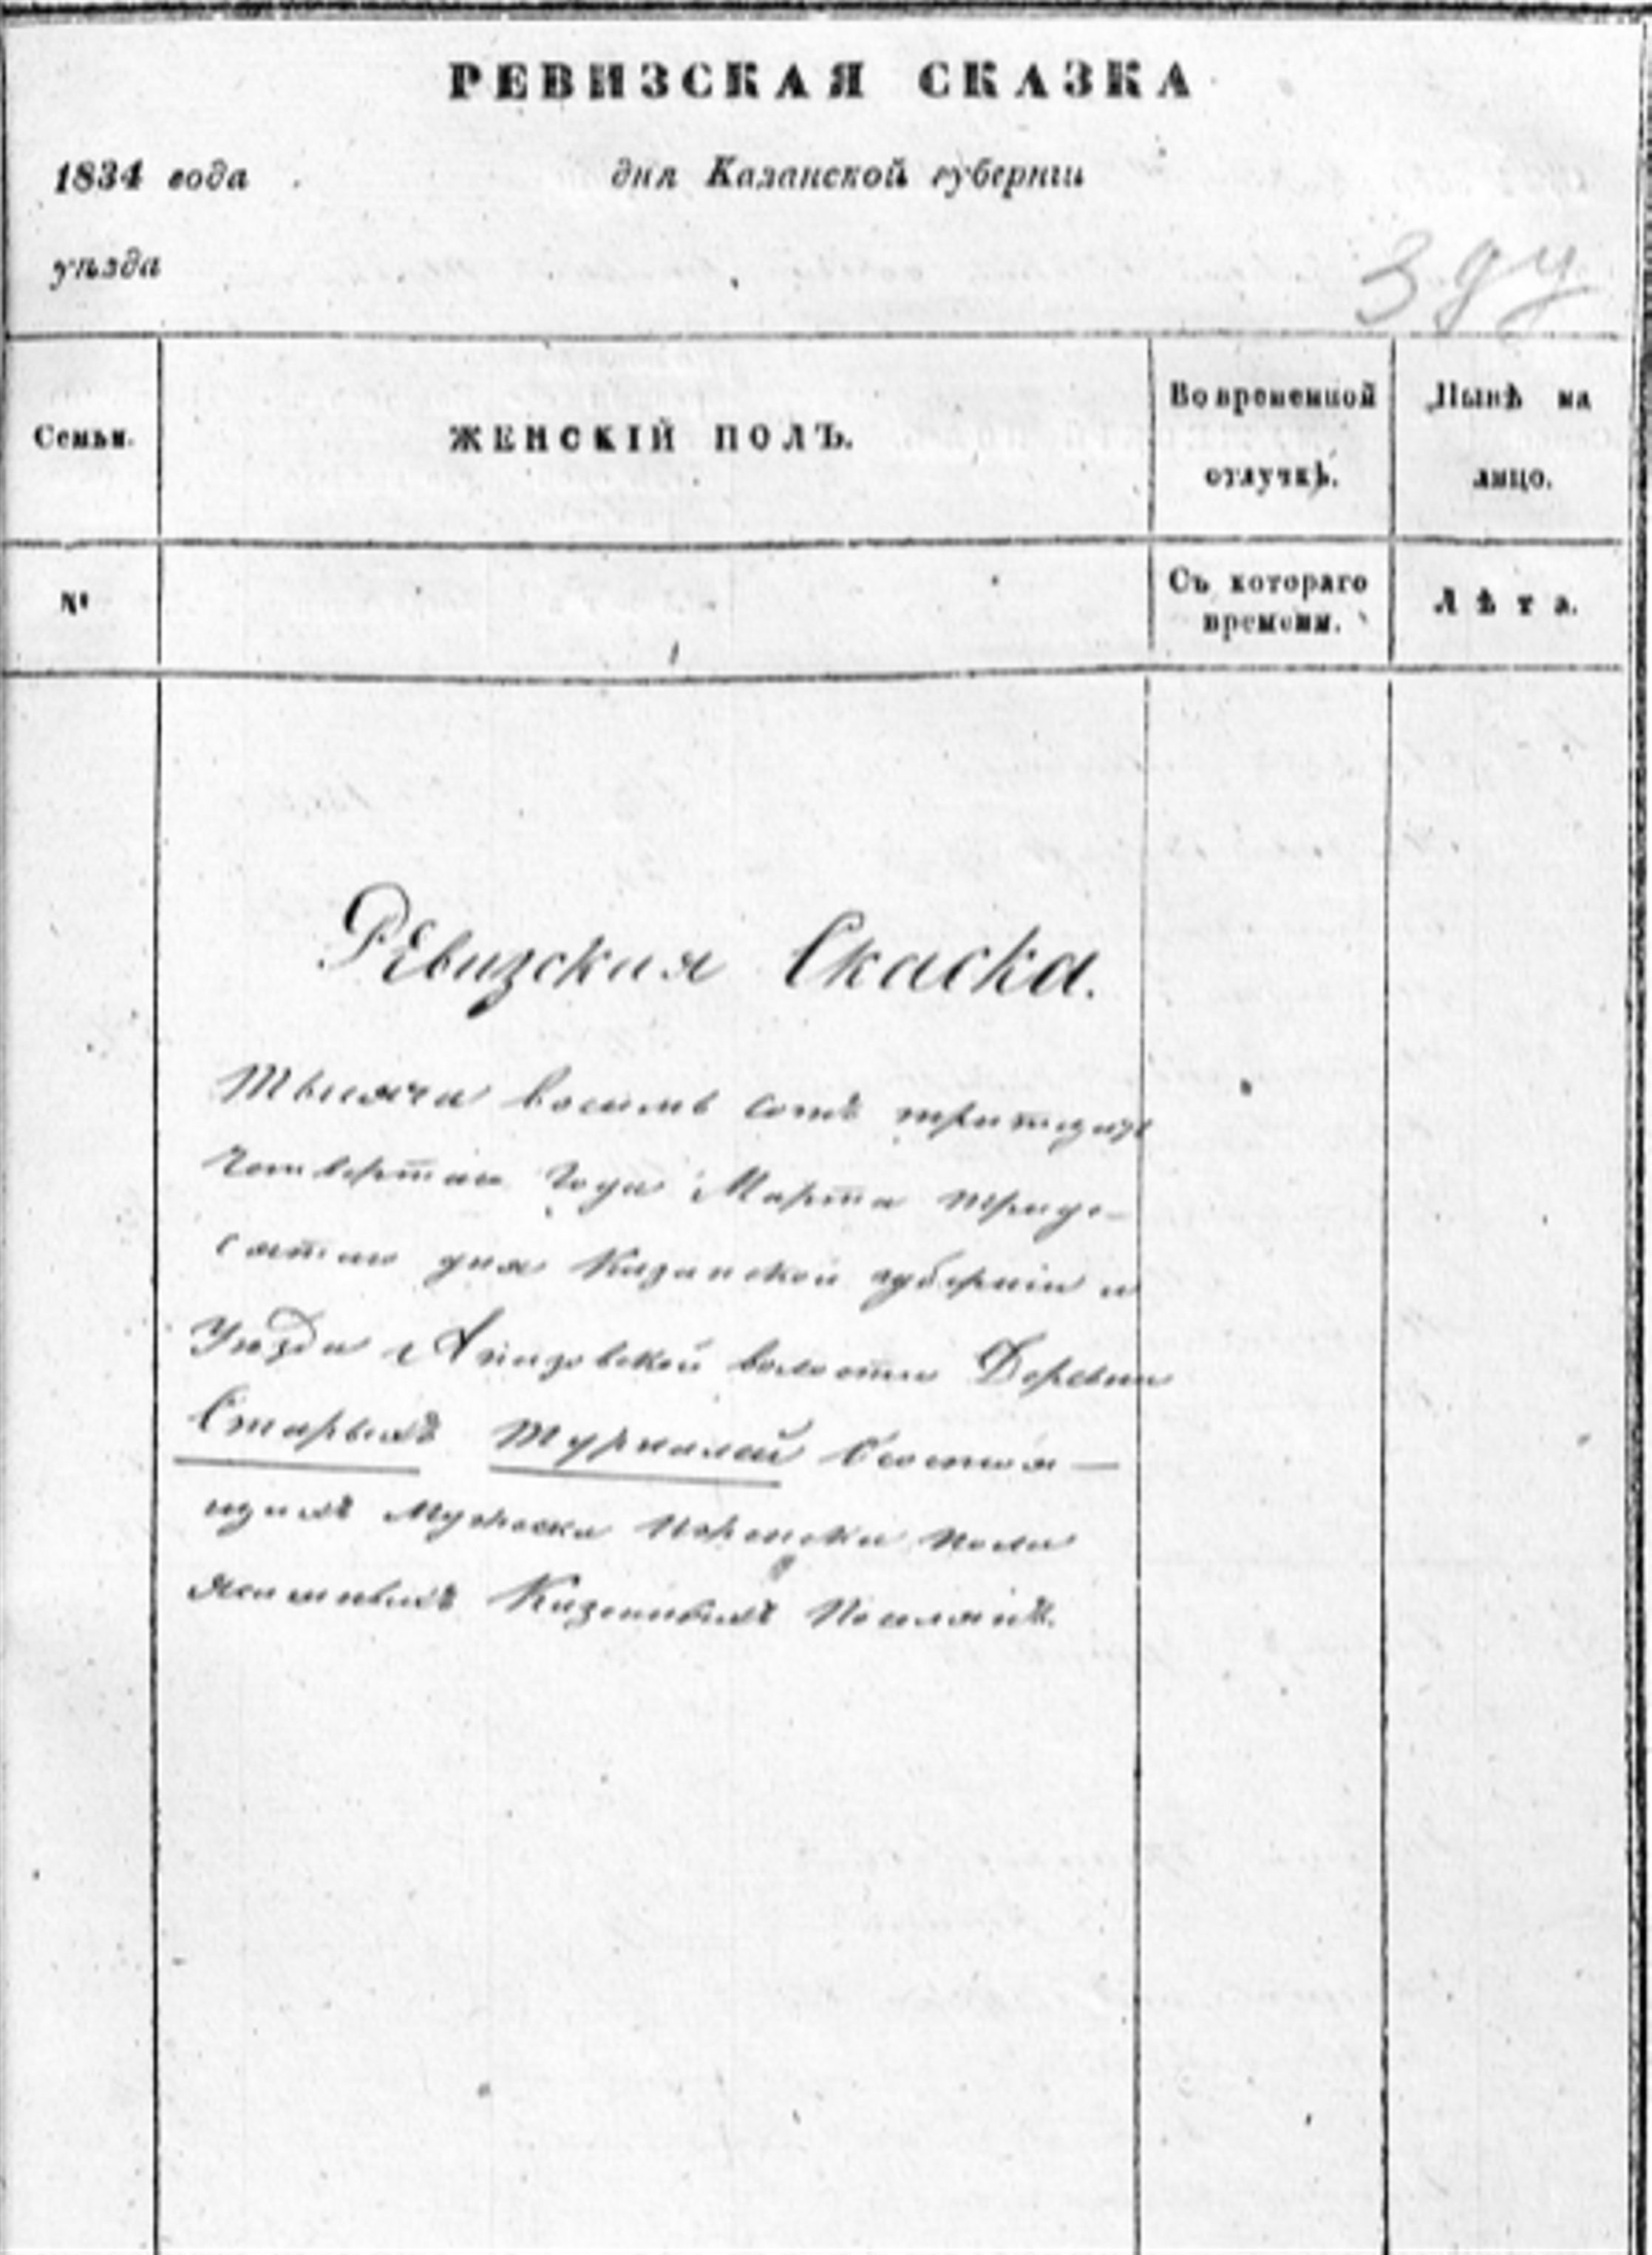 РЕВИЗСКАЯ СКАЗКА
1834 года дня Казанской губернии
уѣзда
Семьи. ЖЕНСКІЙ ПОЛЪ. Во временной отлучкѣ. Нынѣ на лицо.
№ Съ котораго времени. Лѣта.
Ревизская Скаска.
Тысяча восемь сотъ тритцать
четвертаго года Марта триде-
сятаго дня Казанской губерніи и
Уѣзда волости Деревни
Старыхъ Турналей Состоя-
щихъ Мужеска Иженска пола
ясашныхъ Казенныхъ Поселянъ.